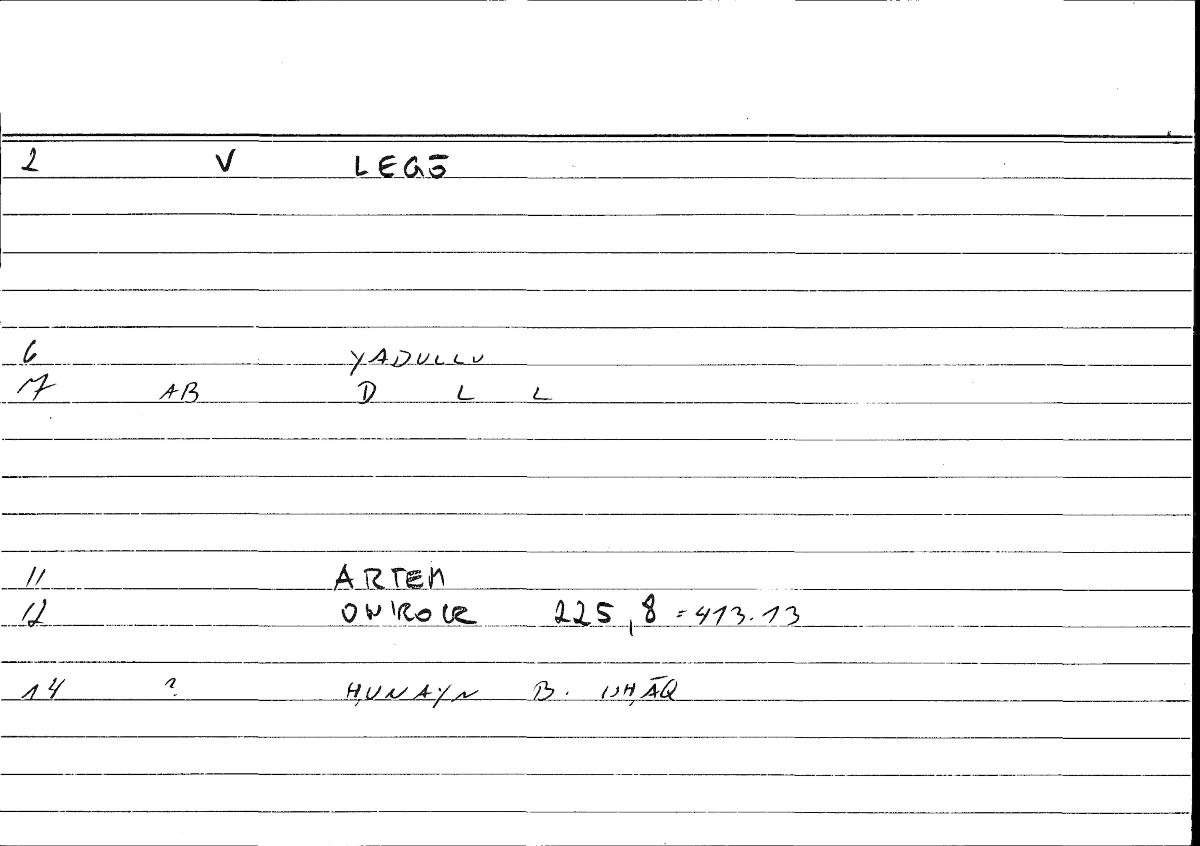 2 V LEGŌ
6 YADULLU
7 AB D L L
11 ARTEM
12 ONIROCR 225,8 = 413.13
14 ? ḤUNAYN B. ISḤĀQ